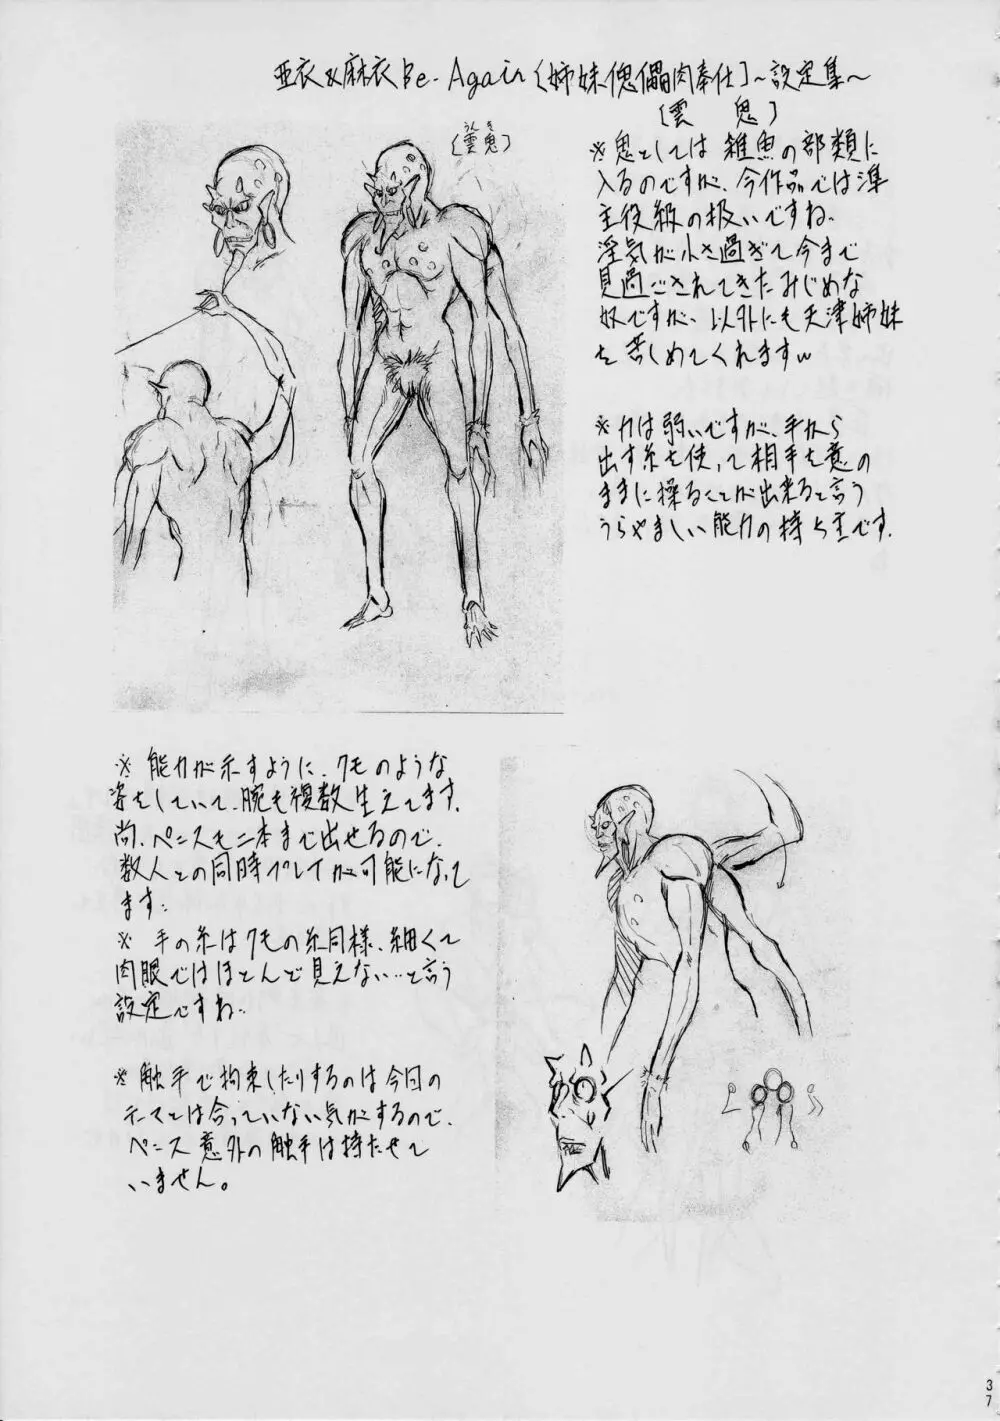 亜衣&麻衣Be-Again〔姉妹傀儡肉奉仕〕~設定集~
〔雲鬼〕
〔雲鬼〕
うんき
※鬼としては雑魚の部類に
入るのですが、今作品では準
主役級の扱いですね、
淫気が小さ過ぎて今まで
見過ごされてきたみじめな
奴ですが、以外にも天津姉妹
を苦しめてくれますw
※力は弱いですが、手から
出す糸を使って相手を意の
ままに操ることが出来ると言う
うらやましい能力の持ち主です.
※能力が示すように、クモのような
姿をしていて、腕も複数生えてます.
尚、ペニスも二本まで出せるので、
数人との同時プレイが可能になって
ます:
※手の糸はクモの糸同様、細くて
肉眼ではほとんど見えない…と言う
設定ですね..
※触手で拘束したりするのは今回の
テーマとは合っていない気がするので、
ペニス意外の触手は持たせて
いません。
37